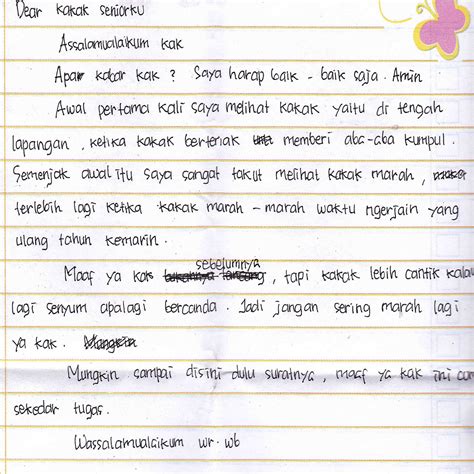 Dear kakak seniorku
Assalamualaikum kak
Apa kabar kak ? Saya harap baik - baik saja. Amin
Awal pertama kali saya melihat kakak yaitu di tengah
lapangan , ketika kakak berteriak memberi aba-aba kumpul.
Semenjak awal itu saya sangat takut melihat kakak marah ,
terlebih lagi ketika kakak marah - marah waktu ngerjain yang
ulang tahun kemarin.
Maaf ya kak sebelumnya , tapi kakak lebih cantik kalau
lagi senyum apalagi bercanda. Jadi jangan sering marah lagi
ya kak. Mungkin
Mungkin sampai disini dulu suratnya , maaf ya kak ini
sekedar tugas.
Wassalamualaikum wr. wb